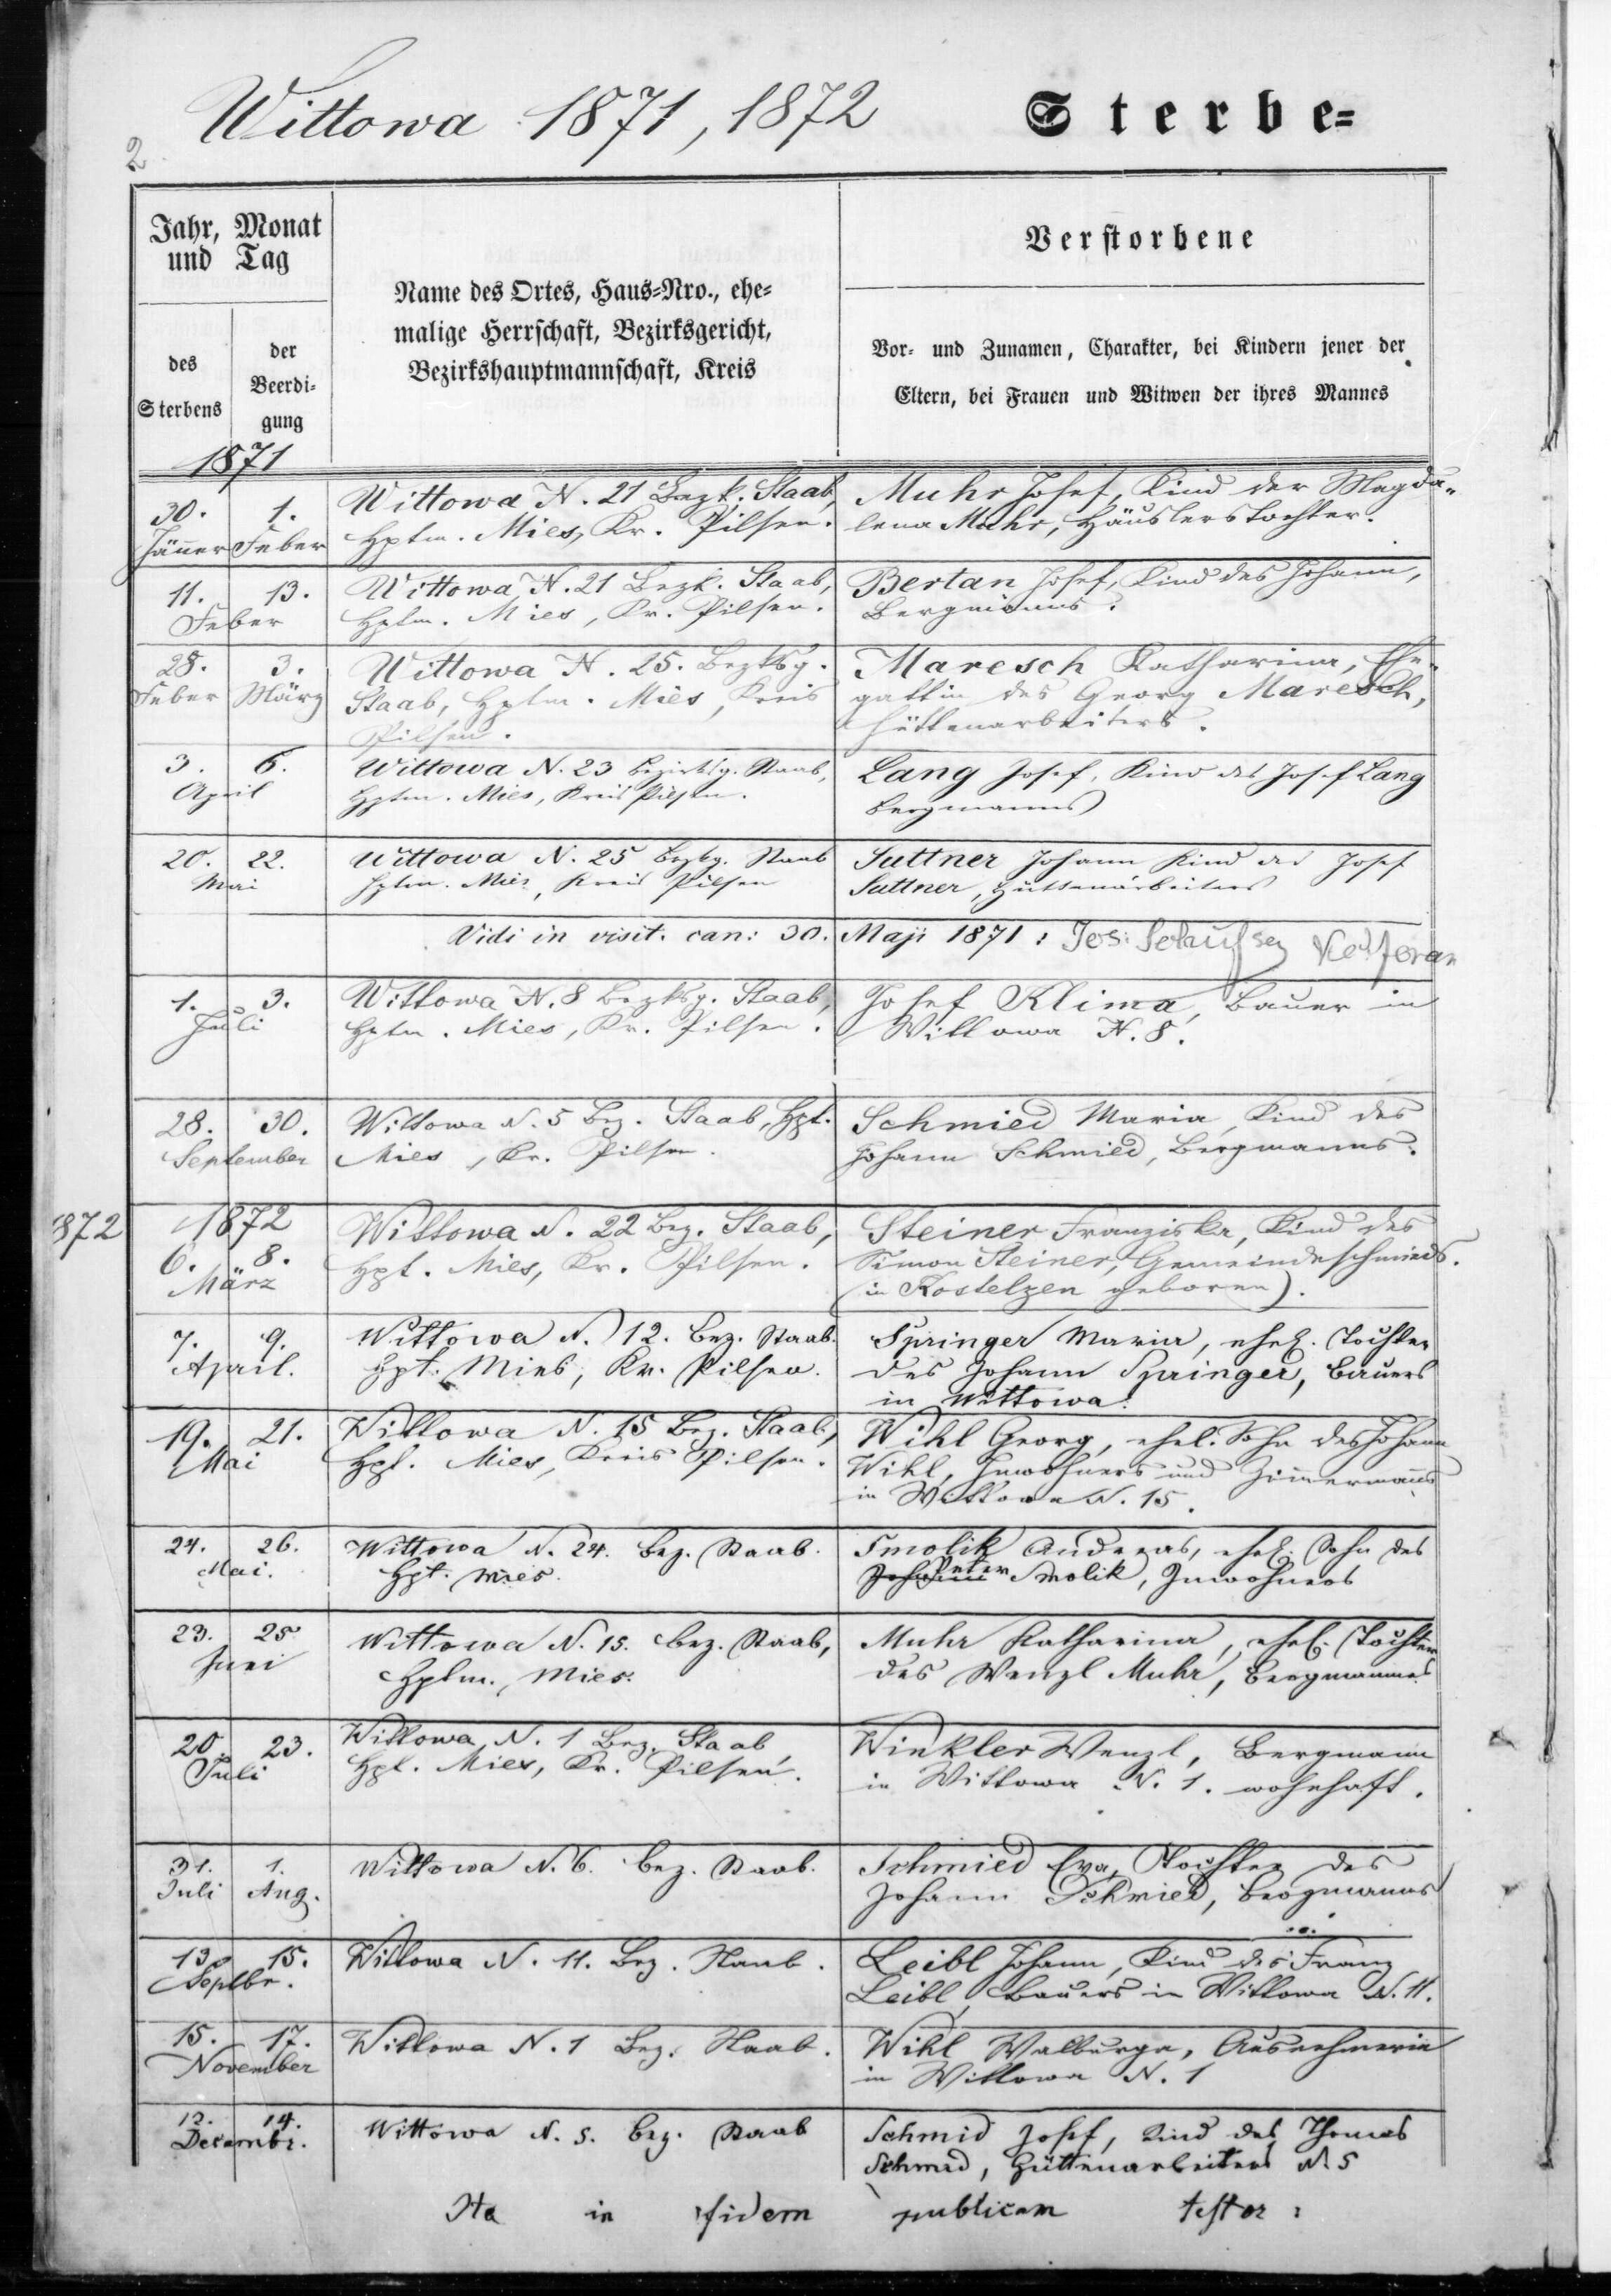 2
Wittowa 1871, 1872
Sterbe=
Jahr, Monat
und Tag
des
Sterbens
der
Beerdi-
gung
Name des Ortes, Haus-Nro., ehe-
malige Herrschaft, Bezirksgericht,
Bezirkshauptmannschaft, Kreis
Verstorbene
Vor- und Zunamen, Charakter, bei Kindern jener der
Eltern, bei Frauen und Witwen der ihres Mannes
1871
30. 1.
Jänner Feber
Wittowa N. 21 Bezk. Staab,
Hptm. Mies, Kr. Pilsen.
Muhr Josef, Kind der Magda-
lena Muhr, Häuslerstochter.
11. 13.
Feber
Wittowa N. 21 Bezk. Staab,
Hptm. Mies, Kr. Pilsen.
Bertan Josef, Kind des Johann,
Bergmanns.
28. 3.
Feber März
Wittowa N. 25. Bezksg.
Staab, Hptm. Mies, Kreis
Pilsen.
Maresch Katharina, Ehe-
gattin des Georg Maresch,
Hüttenarbeiters.
3. 6.
April
Wittowa N. 23 Bezirksg. Staab,
Hptm. Mies, Kreis Pilsen.
Lang Josef, Kind des Josef Lang
Bergmanns
20. 22.
Mai
Wittowa N. 25 Bezksg. Staab
Hptm. Mies, Kreis Pilsen
Suttner Johann Kind des Josef
Suttner, Hüttenarbeiters
Vidi in visit. can: 30. Maji 1871: Jos:
1. 3.
Juli
Wittowa N. 8 Bezksg. Staab,
Hptm. Mies, Kr. Pilsen.
Josef Klima, Bauer in
Wittowa N. 8.
28. 30.
September
Wittowa N. 5 Bez. Staab, Hpt.
Mies, Kr. Pilsen.
Schmied Maria, Kind des
Johann Schmied, Bergmanns.
1872
1872
6. 8.
März
Wittowa N. 22 Bez. Staab,
Hpt. Mies, Kr. Pilsen.
Steiner Franziska, Kind des
Simon Steiner, Gemeindeschmieds.
(in Kostelzen geboren).
7. 9.
April.
Wittowa N. 12. Bez. Staab.
Hpt. Mies, Kr. Pilsen.
Springer Maria, ehel. Tochter
des Johann Springer, Bauers
in Wittowa.
19. 21.
Mai
Wittowa N. 15 Bez. Staab,
Hpt. Mies, Kreis Pilsen.
Wihl Georg, ehel. Sohn des Johann
Wihl, Inwohners und Zimmermanns
in Wittowa N. 15.
24. 26.
Mai.
Wittowa N. 24. Bez. Staab.
Hpt. Mies.
Smolik Andreas, ehel. Sohn des
Johann Peter Smolik, Inwohners
23. 25
Juni
Wittowa N. 15. Bez. Staab,
Hptm. Mies.
Muhr Katharina, ehel. Tochter
des Wenzl Muhr, Bergmannes
20. 23.
Juli
Wittowa N. 1 Bez. Staab,
Hpt. Mies, Kr. Pilsen.
Winkler Wenzl, Bergmann
in Wittowa N. 1. wohnhaft.
31. 1.
Juli Aug.
Wittowa N. 6. Bez. Staab.
Schmied Eva, Tochter des
Johann Schmied, Bergmanns
13. 15.
Septbr.
Wittowa N. 11. Bez. Staab.
Leibl Johann, Kind des Franz
Leibl, Bauers in Wittowa N. 11.
15. 17.
November
Wittowa N. 1 Bez. Staab.
Wihl Walburga, Ausnehmerin
in Wittowa N. 1
12. 14.
Decembr.
Wittowa N. 5. Bez. Staab
Schmid Josef, Kind des Thomas
Schmid, Hüttenarbeiters N. 5
Ita in fidem publicam testor: